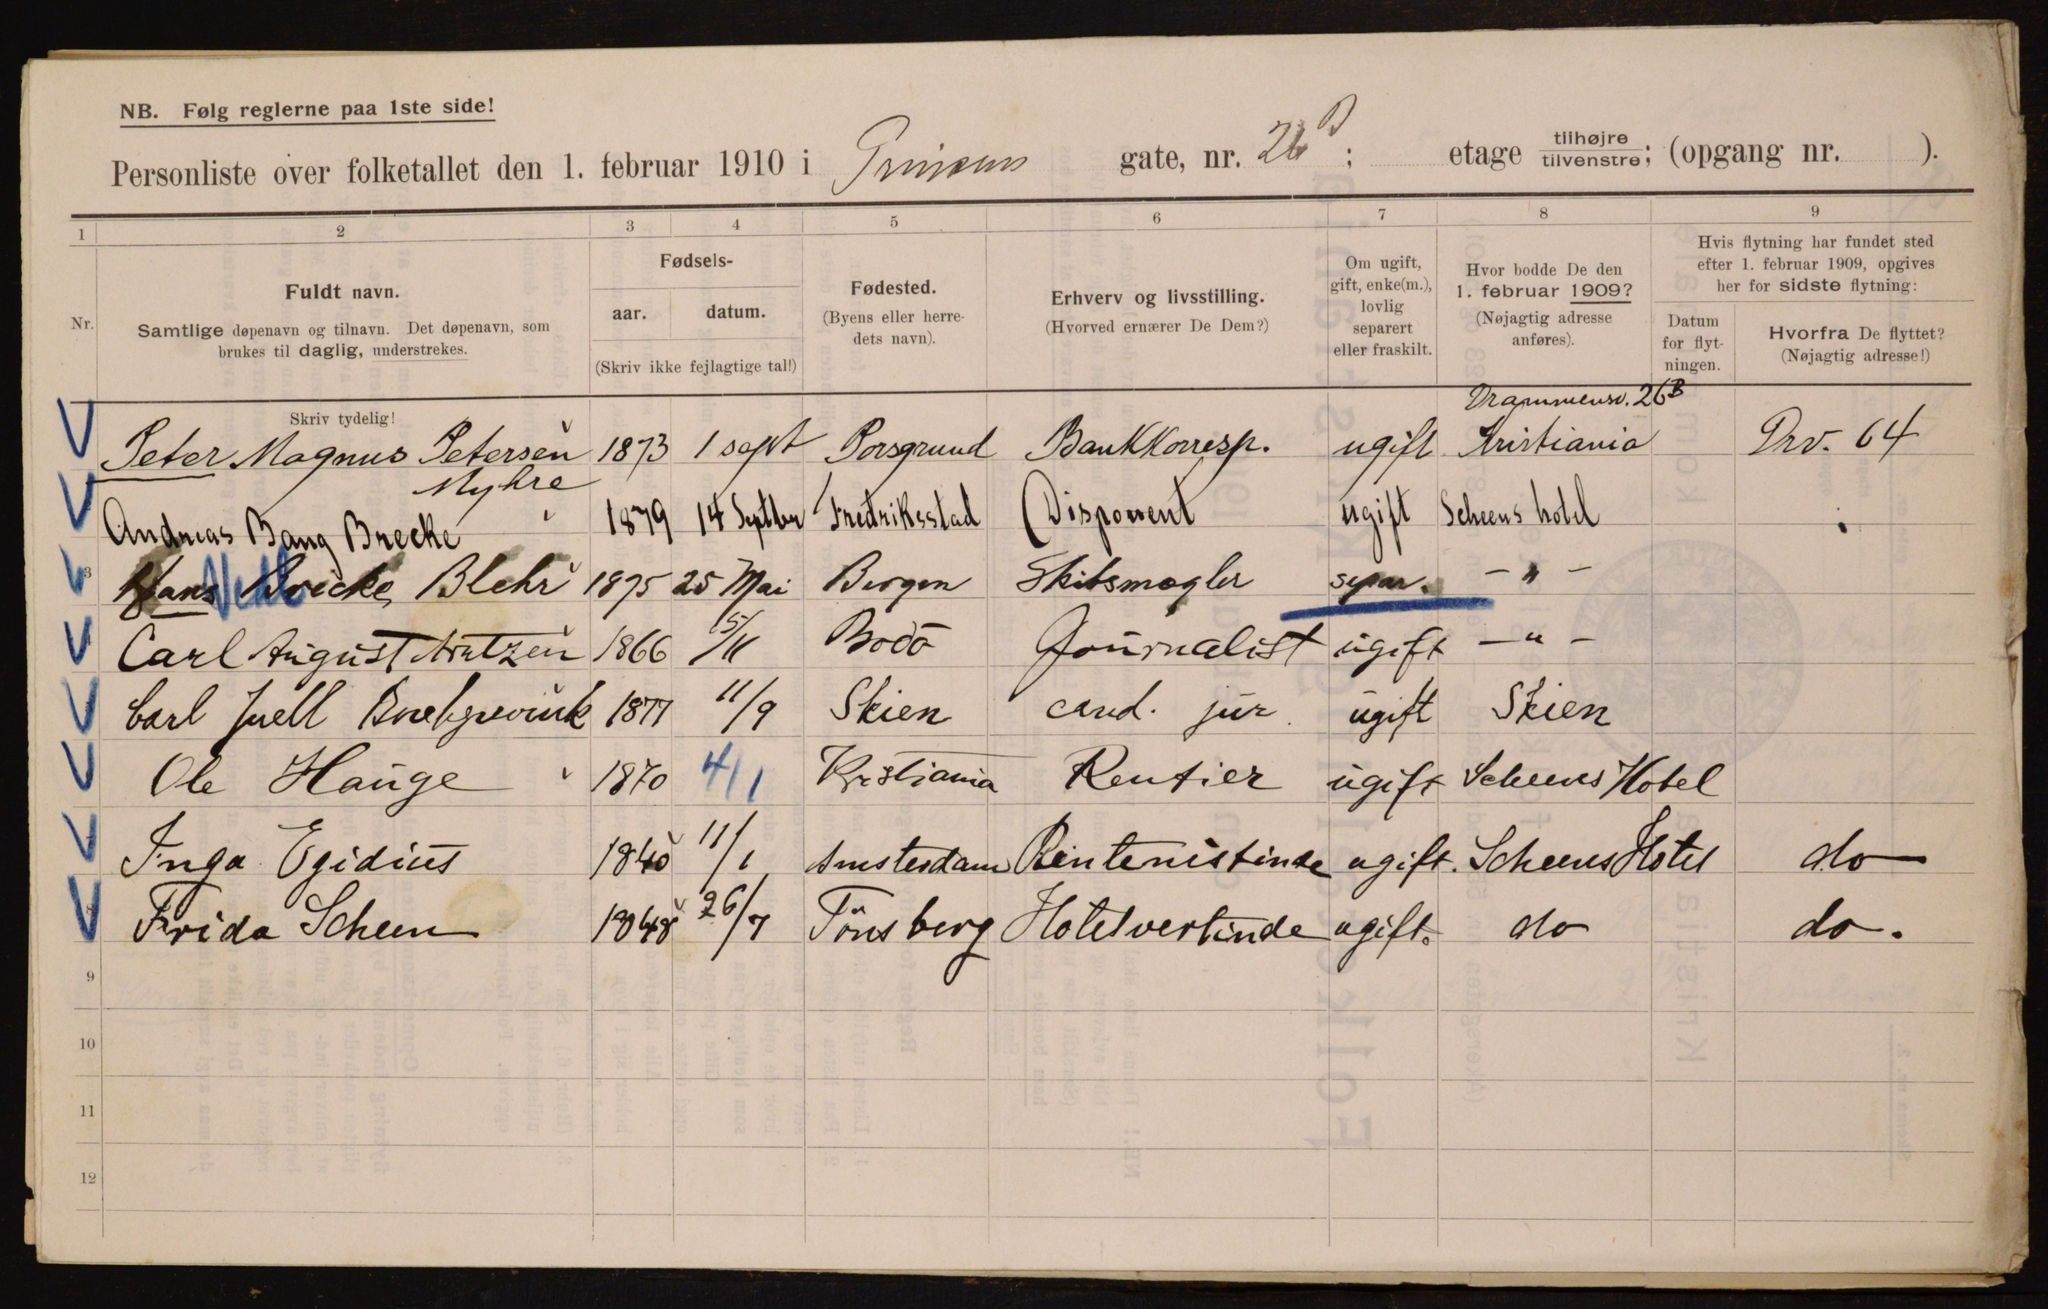 NB. Følg reglerne paa 1ste side!
Personliste over folketallet den 1. februar 1910 i Prinsens gate, nr. 26 B; etage tilhøjre tilvenstre; (opgang nr. ).
1 2 3 4 5 6 7 8 9
Nr.
Fuldt navn.
Samtlige døpenavn og tilnavn. Det døpenavn, som
brukes til daglig, understrekes.
Skriv tydelig!
Fødsels-
aar. datum.
(Skriv ikke fejlagtige tal!)
Fødested.
(Byens eller herre-
dets navn).
Erhverv og livsstilling.
(Hvorved ernærer De Dem?)
Om ugift,
gift, enke(m.),
lovlig
separert
eller fraskilt.
Hvor bodde De den
1. februar 1909?
(Nøjagtig adresse
anføres).
Hvis flytning har fundet sted
efter 1. februar 1909, opgives
her for sidste flytning:
Datum
for flyt-
ningen.
Hvorfra De flyttet?
(Nøjagtig adresse!)
Drammensv. 26B
Peter Magnus Petersen 1873 1 sept Porsgrund Bankkorresp. ugift Kristiania Drv. 64
Myhre
Andreas Bang Brecke 1879 14 Septbr Fredriksstad Disponent ugift Scheens hotel
3 Hans Brecke Blehr 1875 25 Mai Bergen Skibsmægler separ. - " -
Carl August Arntzen 1866 5/11 Bodö Journalist ugift - " -
Carl Juell 1877 11/9 Skien cand. jur. ugift Skien
Ole Hauge 1870 4/1 Kristiania Rentier ugift Scheens Hotel
Inga Egidius 1840 11/1 Amsterdam Rentenistinde ugift. Scheens Hotel do
Frida Scheen 1848 26/7 Tönsberg Hotelvertinde ugift. do do.
9
10
11
12